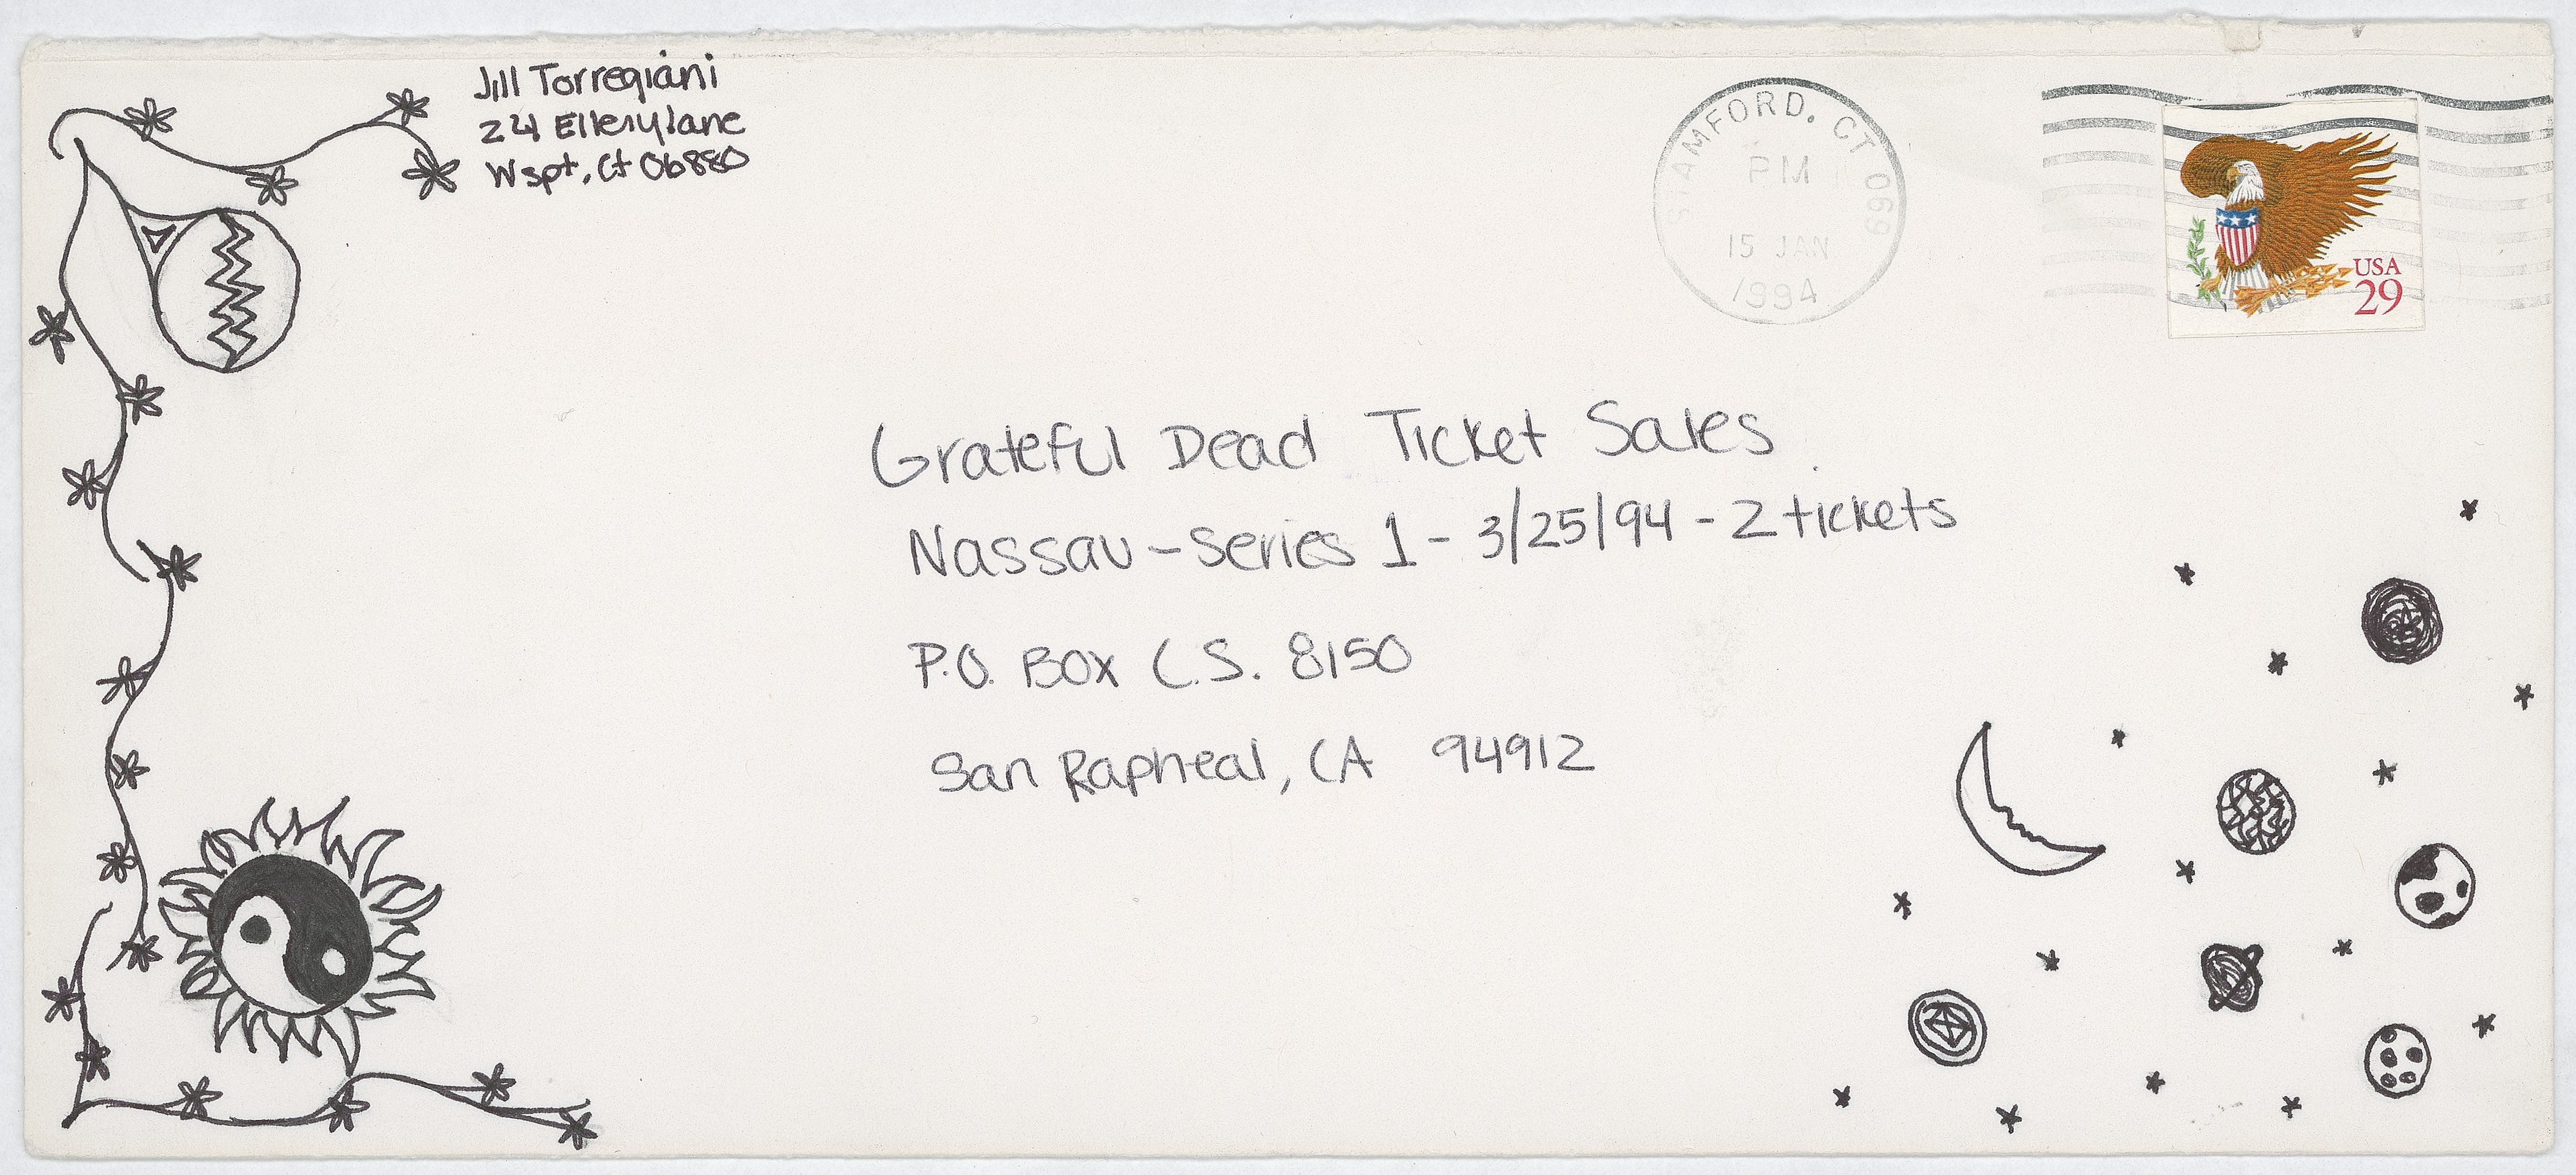 Jill Torregiani
24 Ellerylane
Wspt, Ct 06880
STAMFORD, CT 069
PM
15 JAN
1994
USA
29
Grateful Dead Ticket Sales
Nassau - Series 1 - 3/25/94 - 2 tickets
P.O. Box C.S. 8150
San Rapheal, CA 94912